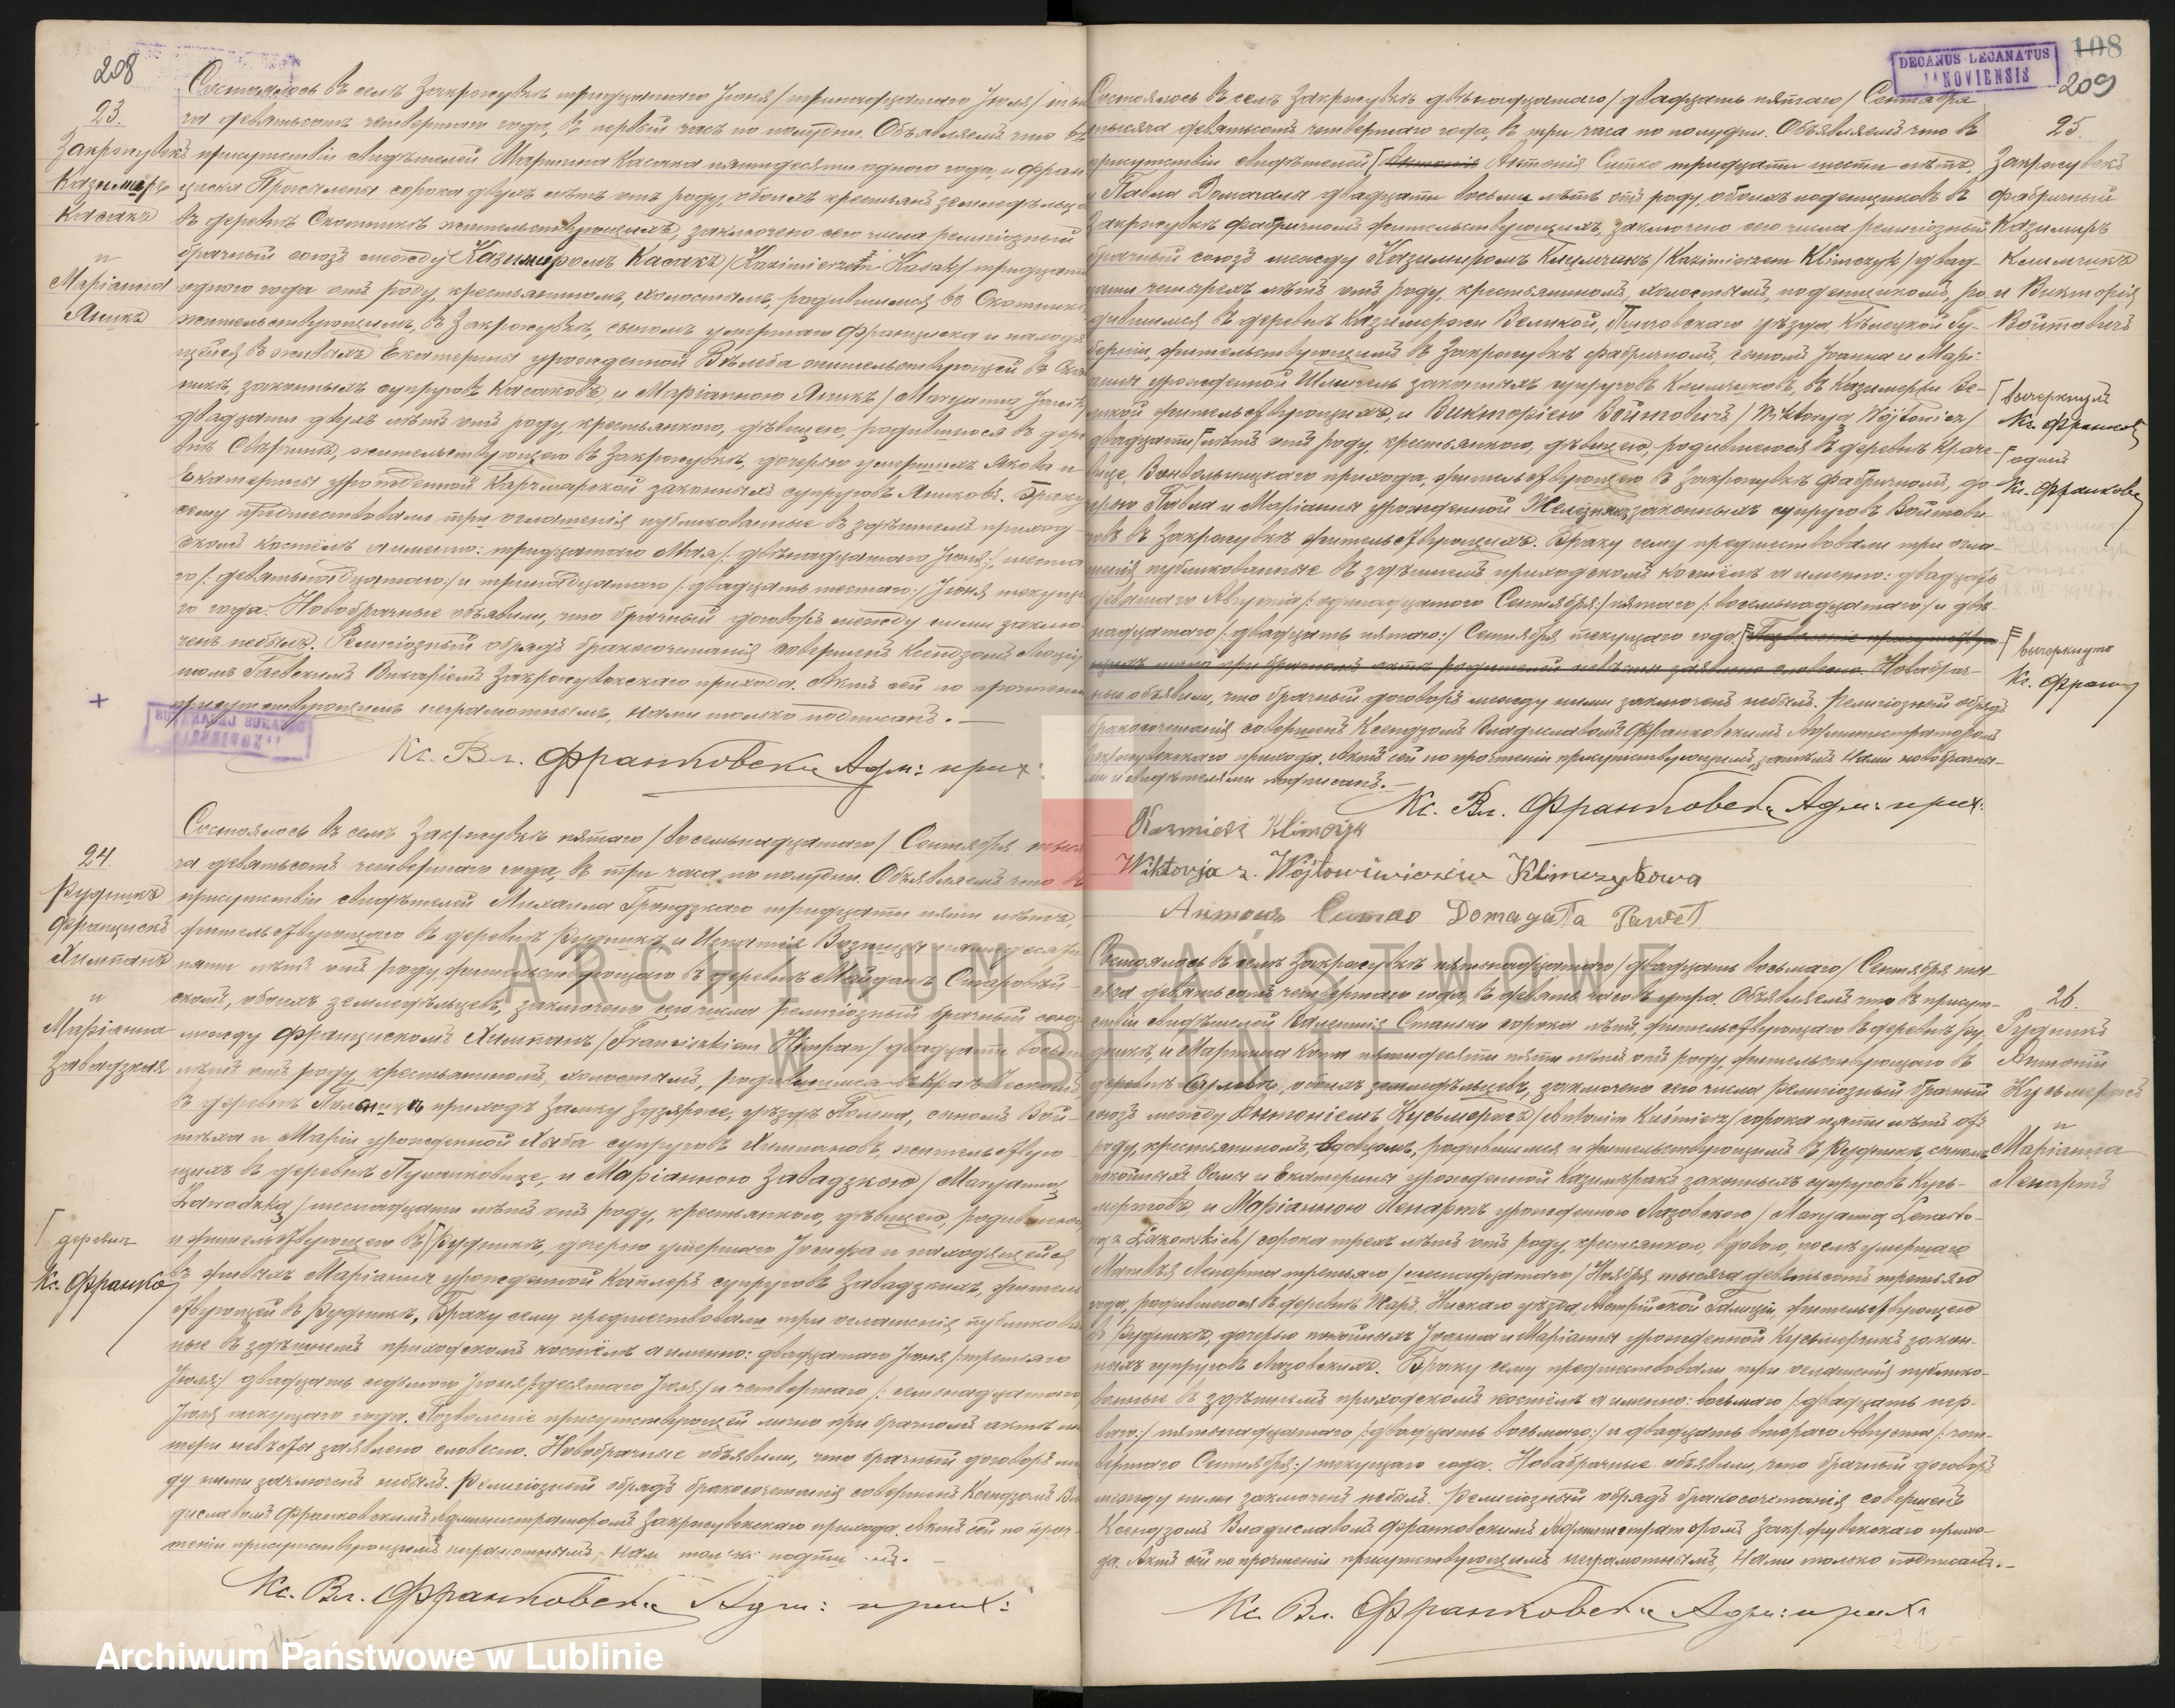 208
23.
Закржувекъ
Казимиръ
Касакъ
и
Маріанна
Яникъ
Состоялось въ селѣ Закржувкѣ тридцатаго Іюня /тринадцатаго Іюля/ тыся
ча девятьсотъ четвертаго года, въ первый часъ по полудни. Объявляемъ что въ
присутствіи свидѣтелей Мартина Касака пятидесяти одного года, и Фран
циска сорока двухъ лѣтъ отъ роду, обоихъ крестьянъ земледѣльцевъ
въ деревнѣ Скотникѣ жительствующихъ, заключено сего числа религіозный
брачный союзъ между Казимиромъ Касакъ /Kazimierzem Kasak/ тридцати
одного года отъ роду, крестьяниномъ, холостымъ, родившимся въ Скотникахъ
жительствующимъ, въ Закржувкѣ, сыномъ умершаго Франциска и находя
щейся въ живыхъ Екатерины урожденной жительствующей въ Скот
никѣ, законныхъ супруговъ Касаковъ, и Маріанною Яникъ /Maryanną Janik/
двадцати двухъ лѣтъ отъ роду, крестьянкою, дѣвицею, родившеюся въ дере
внѣ жительствующею въ Закржувкѣ, дочерью умершихъ Якова и
Екатерины урожденной Карчмарской законныхъ супруговъ Яниковъ. Браку
сему предшествовали три оглашенія публикованные въ здѣшнемъ приход-
скомъ костёлѣ а именно: тридцатаго Мая /: двѣнадцатаго Іюня:/, шеста
го /: девятьнадцатаго:/ и тринадцатаго /: двадцать шестаго:/ Іюня текуща
го года. Новобрачные объявили, что брачный договоръ между ними заклю
ченъ небылъ. Религіозный обрядъ бракосочетанія совершенъ Ксендзомъ
Викаріемъ Закржувекскаго прихода. Актъ сей по прочтеніи
присутствующимъ неграмотнымъ, Нами только подписанъ. —
Кс. Вл. Франковски Адм: прих:
24.
Рудникъ
Францискъ
Химпанъ
и
Маріанна
Завадзкая
Состоялось въ селѣ Закржувкѣ пятаго /восемьнадцатаго/ Сентября тыся
ча девятьсотъ четвертаго года, въ три часа по полудни. Объявляемъ что въ
присутствіи свидѣтелей Михаила тридцати пяти лѣтъ,
жительствующаго въ деревнѣ Рудникъ и Игнатія пятидесяти
пяти лѣтъ отъ роду жительствующаго въ деревнѣ Майданъ
скомъ, обоихъ земледѣльцевъ, заключено сего числа религіозный брачный союзъ
между Францискомъ Химпанъ /Franciszkiem Himpan/ двадцати восьми
лѣтъ отъ роду, крестьяниномъ, холостымъ, родившимся въ
въ деревнѣ приходъ сыномъ Вой-
тѣха и Маріи урожденной Хыба супруговъ Химпановъ, жительствую-
щихъ въ деревнѣ и Маріанною Завадзкою /Maryanną
Zawadzką/ шестнадцати лѣтъ отъ роду, крестьянкою, дѣвицею, родившеюся
и жительствующею въ Рудникѣ, дочерью умершаго Іосифа и находящейся
въ живыхъ Маріанны урожденной Каплеръ супруговъ Завадзкихъ, житель
ствующей въ Рудникѣ. Браку сему предшествовали три оглашенія публикован
ные въ здѣшнемъ приходскомъ костёлѣ а именно: двадцатаго Іюня /: третьяго
Іюля:/ двадцать седьмого Іюня /: десятаго Іюля:/ и четвертаго /: семьнадцатаго
Іюля текущаго года. Позволеніе присутствующей лично при брачномъ актѣ ма
тери невѣсты заявлено словесно. Новобрачные объявили, что брачный договоръ меж
ду ними заключенъ небылъ. Религіозный обрядъ бракосочетанія совершенъ Ксендзомъ Вла
диславомъ Франковскимъ Администраторомъ Закржувекскаго прихода. Актъ сей по проч-
теніи присутствующимъ неграмотнымъ, Нами только подписанъ. —
деревнѣ
Кс. Франко
Кс. Вл. Франковски Адм: прих:
DECANUS DECANATUS
JANOVIENSIS
108
209
25.
Закржувекъ
фабричный
Казимиръ
Климчикъ
и Викторія
Войтовичъ
Состоялось въ селѣ Закржувкѣ двѣнадцатаго /двадцать пятаго/ Сентября
тысяча девятьсотъ четвертаго года, въ три часа по полудни. Объявляемъ что въ
присутствіи свидѣтелей Антонія Ситко тридцати шести лѣтъ,
и Павла Домагала двадцати восьми лѣтъ отъ роду, обоихъ поденщиковъ въ
Закржувкѣ фабричномъ жительствующихъ, заключено сего числа религіозный
брачный союзъ между Казимиромъ Климчикъ /Kazimierzem Klimczyk/ двад-
цати четырехъ лѣтъ отъ роду, крестьяниномъ, холостымъ, поденщикомъ, ро-
дившимся въ деревнѣ Казимержи Великой, Пинчовскаго уѣзда, Кѣлецкой Гу-
берніи, жительствующимъ въ Закржувкѣ фабричномъ, сыномъ Іоанна и Марі-
анны урожденной законныхъ супруговъ Климчиковъ, въ Казимержи Ве-
ликой жительствующихъ, и Викторіею Войтовичъ /Wiktoryą Wójtowicz/
двадцати лѣтъ отъ роду, крестьянкою, дѣвицею, родившеюся въ деревнѣ
прихода, жительствующею въ Закржувкѣ фабричномъ, до-
черью Павла и Маріанны урожденной законныхъ супруговъ Войтови-
човъ въ Закржувкѣ жительствующихъ. Браку сему предшествовали три огла-
шенія публикованные въ здѣшнемъ приходскомъ костёлѣ а именно: двадцать
девятаго Августа /: одинадцатаго Сентября:/ пятаго /: восемьнадцатаго:/ и двѣ-
надцатаго /: двадцать пятаго:/ Сентября текущаго года. Позволеніе присутствую
щихъ лично при брачномъ актѣ родителей невѣсты заявлено словесно. Новобрач-
ные объявили, что брачный договоръ между ними заключенъ небылъ. Религіозный обрядъ
бракосочетанія совершенъ Ксендзомъ Владиславомъ Франковскимъ Администраторомъ
Закржувекскаго прихода. Актъ сей по прочтеніи присутствующимъ, Нами новобрачны-
ми и свидѣтелями подписанъ. —
вычеркнулъ
Кс. Франков
одинъ
Кс. Франкове
вычеркнуто
Кс. Франк
Кс. Вл. Франковски Адм: прих:
Kazmierz Klimczyk
Wiktorja z. Klimczykowa
Антонъ Ситко Domagała Paweł
26.
Рудникъ
Антоній
Кусьмержъ
и
Маріанна
Ленартъ
Состоялось въ селѣ Закржувкѣ пятьнадцатаго /двадцать восьмаго/ Сентября ты-
сяча девятьсотъ четвертаго года, въ девять часовъ утра. Объявляемъ что въ присут-
ствіи свидѣтелей Валентія Станько сорока лѣтъ, жительствующаго въ деревнѣ Ру-
дникѣ, и Мартина пятидесяти пяти лѣтъ отъ роду, жительствующаго въ
деревнѣ обоихъ земледѣльцевъ, заключено сего числа религіозный брачный
союзъ между Антоніемъ Кусьмержъ /Antonim Kuśmierz/ сорока пяти лѣтъ отъ
роду, крестьяниномъ, вдовцомъ, родившимся и жительствующимъ въ Рудникѣ, сыномъ
покойныхъ и Екатерины урожденной законныхъ супруговъ Кусь-
мержовъ, и Маріанною Ленартъ урожденною Лазовскою /Maryanną Lenarto-
wą z Łazowskich/ сорока трехъ лѣтъ отъ роду, крестьянкою, вдовою, послѣ умершаго
Матвѣя Ленарта третьяго /шестнадцатаго/ Ноября тысяча девятьсотъ третьяго
года, родившеюся въ деревнѣ Нискаго уѣзда, Австрійской Галиціи, жительствующею
въ Рудникѣ, дочерью покойныхъ Іоанна и Маріанны урожденной закон-
ныхъ супруговъ Лазовскихъ. Браку сему предшествовали три оглашенія публико-
ванные въ здѣшнемъ приходскомъ костёлѣ а именно: восьмаго /: двадцать пер-
ваго:/ пятьнадцатаго /: двадцать восьмаго:/ и двадцать втораго Августа /: чет-
вертаго Сентября:/ текущаго года. Новобрачные объявили, что брачный договоръ
между ними заключенъ небылъ. Религіозный обрядъ бракосочетанія совершенъ
Ксендзомъ Владиславомъ Франковскимъ Администраторомъ Закржувекскаго прихо-
да. Актъ сей по прочтеніи присутствующимъ неграмотнымъ, Нами только подписанъ. —
Кс. Вл. Франковски Адм: прих:
ARCHIWUM PAŃSTWOWE
W LUBLINIE
Archiwum Państwowe w Lublinie